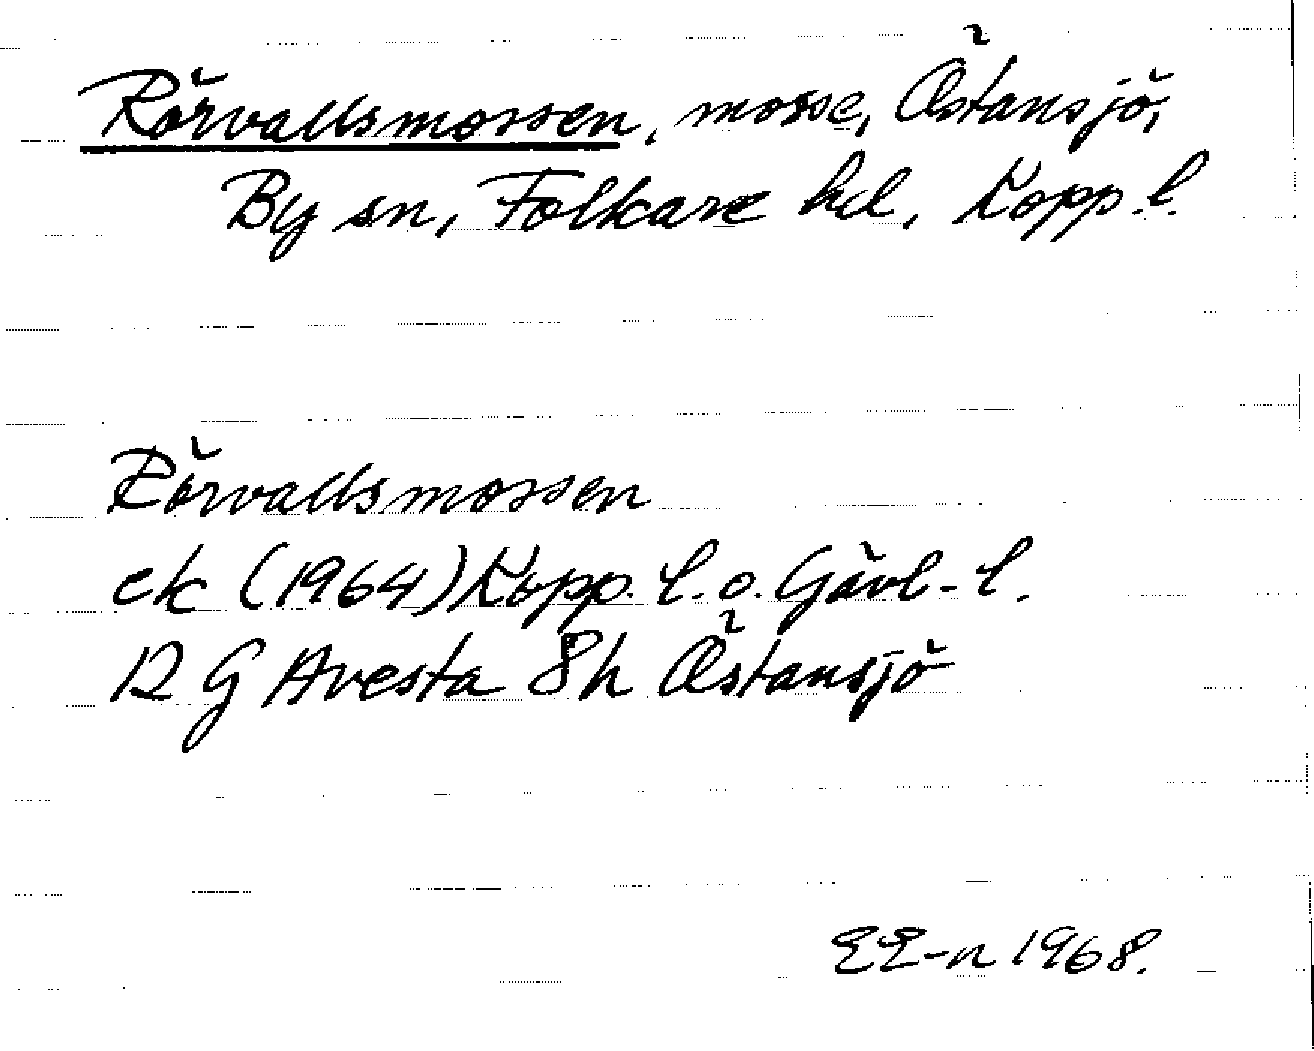 Rörvallsmossen, mosse, Östansjö,
By sn, Folkare hd, Kopp. l.
Rörvallsmossen
ek (1964) Kopp. l. o. Gävl-l.
12 G Avesta 8h Östansjö
EE-n 1968.